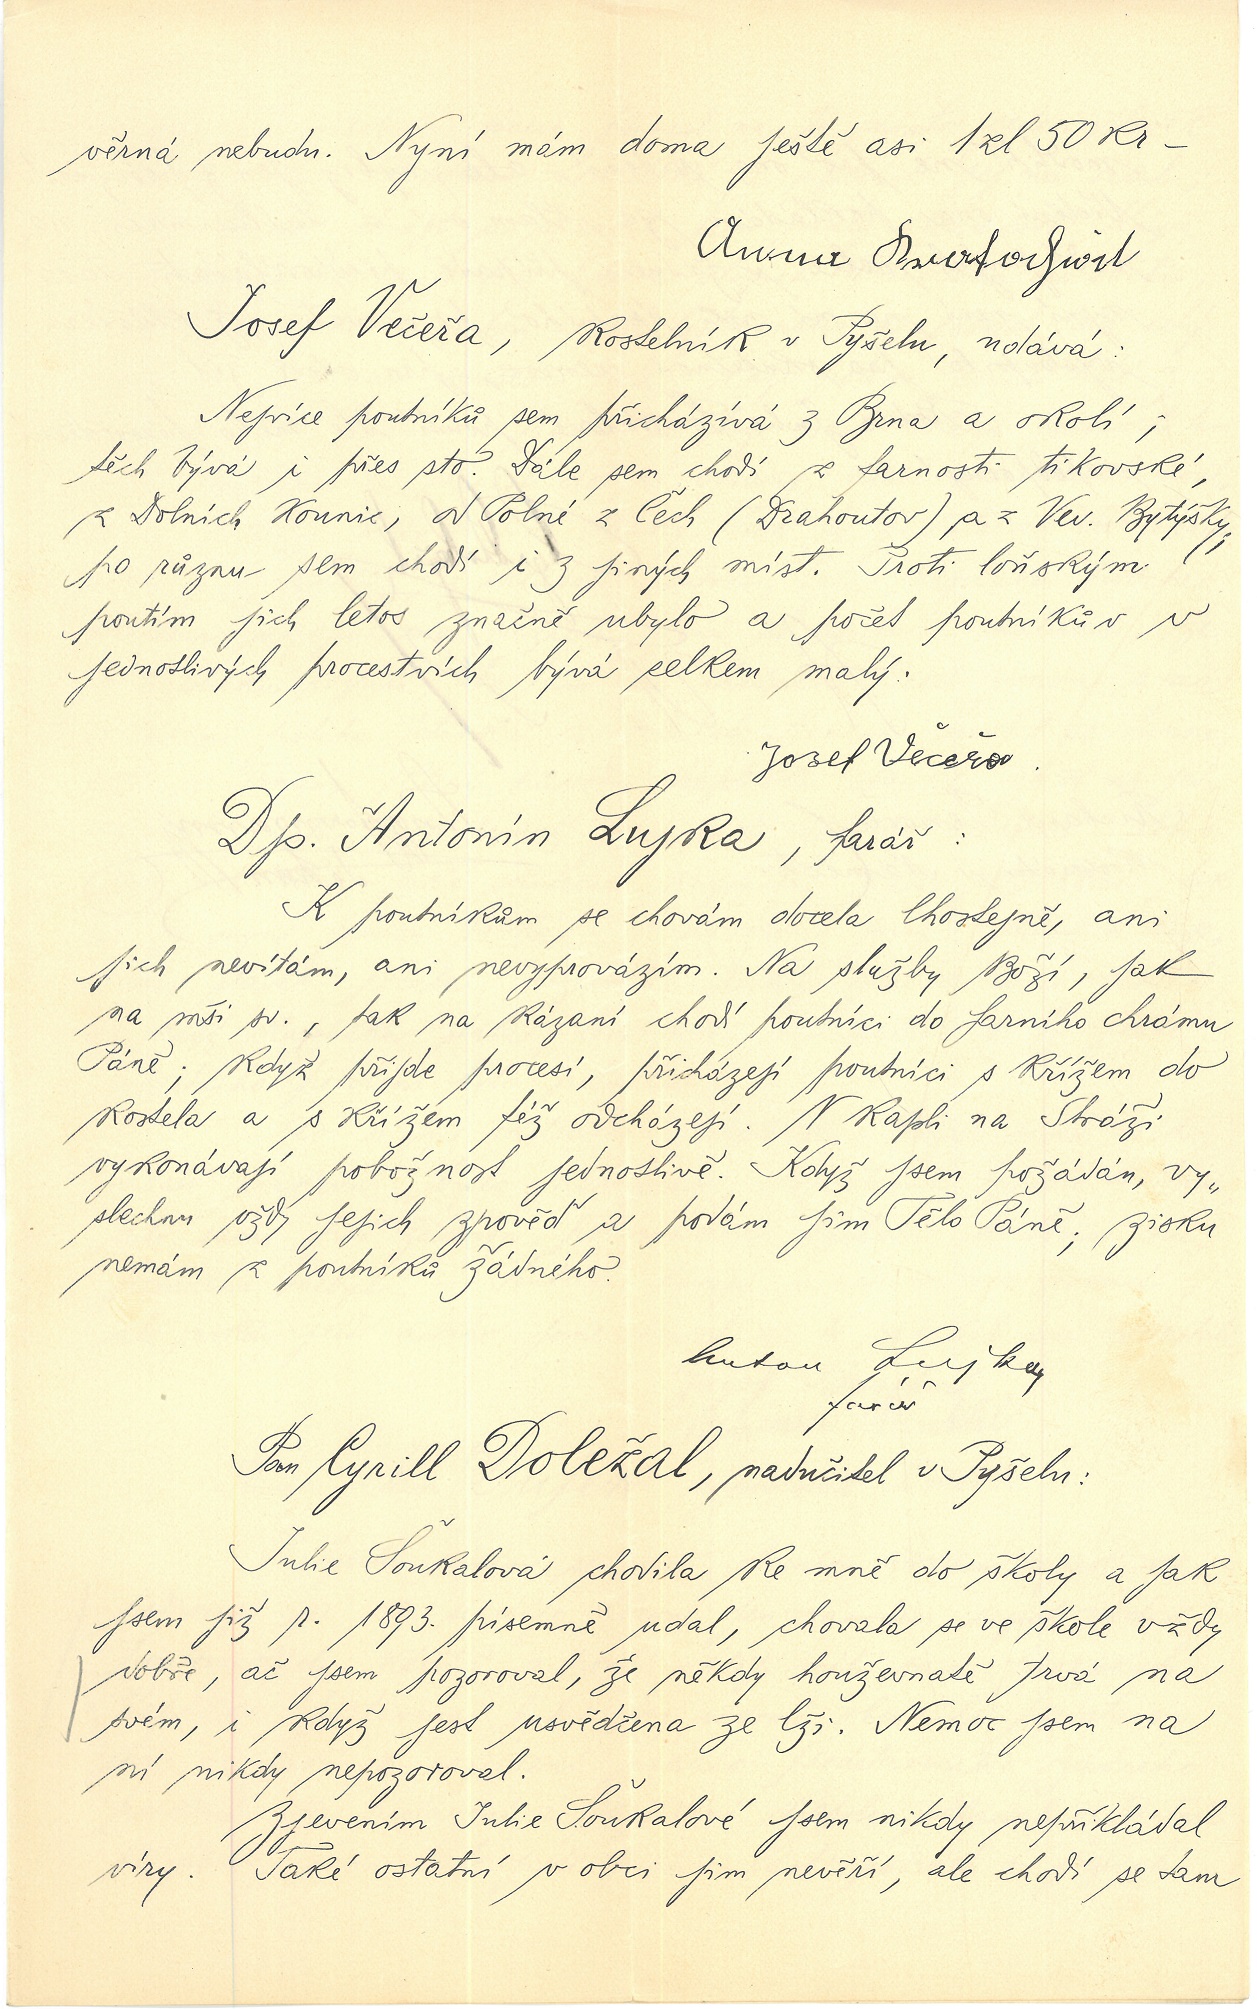 věrná nebudu. Nyní mám doma ještě asi 1 zl 50 kr –
Anna
Josef Večeřa, kostelník v Pyšelu, udává:
Nejvíce poutníků sem přicházívá z Brna a okolí;
těch bývá i přes sto. Dále sem chodí z farnosti tikovské,
z Dolních Kounic, od Polné z Čech (Drahoutov) a z Vev. Bytýšky,
po různu sem chodí i z jiných míst. Proti loňským
poutím jich letos značně ubylo a počet poutníkův v
jednotlivých procestvích bývá celkem malý.
Josef Večeřa.
Dp. Antonín Lujka, farář:
K poutníkům se chovám docela lhostejně, ani
jich nevítám, ani nevyprovázím. Na služby Boží, jak
na mši sv., tak na kázaní chodí poutníci do farního chrámu
Páně; když přijde procesí, přicházejí poutníci s křížem do
kostela a s křížem též odcházejí. V kapli na Stráži
vykonávají pobožnost jednotlivě. Když jsem požádán, vy„
slechnu vždy jejich zpověď a podám jim Tělo Páně; zisku
nemám z poutníků žádného.
Anton Lujka
farář
Pan Cyrill Doležal, nadučitel v Pyšelu:
Julie Šoukalová chodila ke mně do školy a jak
jsem již r. 1893. písemně udal, chovala se ve škole vždy
dobře, ač jsem pozoroval, že někdy houževnatě trvá na
svém, i když jest usvědčena ze lži. Nemoc jsem na
ní nikdy nepozoroval.
Zjevením Julie Šoukalové jsem nikdy nepřikládal
víry. Také ostatní v obci jim nevěří, ale chodí se tam